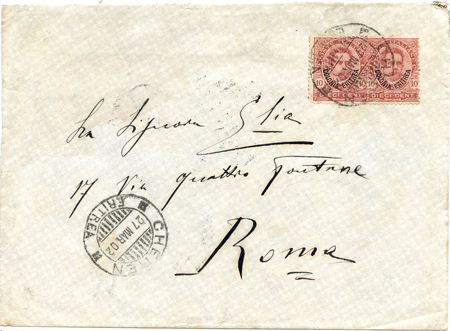 COLONIA ERITREA COLONIA ERITREA
10 10 10
La Signora Elia
17 Via Quattro Fontane
Roma
CHEREN
27 MAR 02
ERITREA